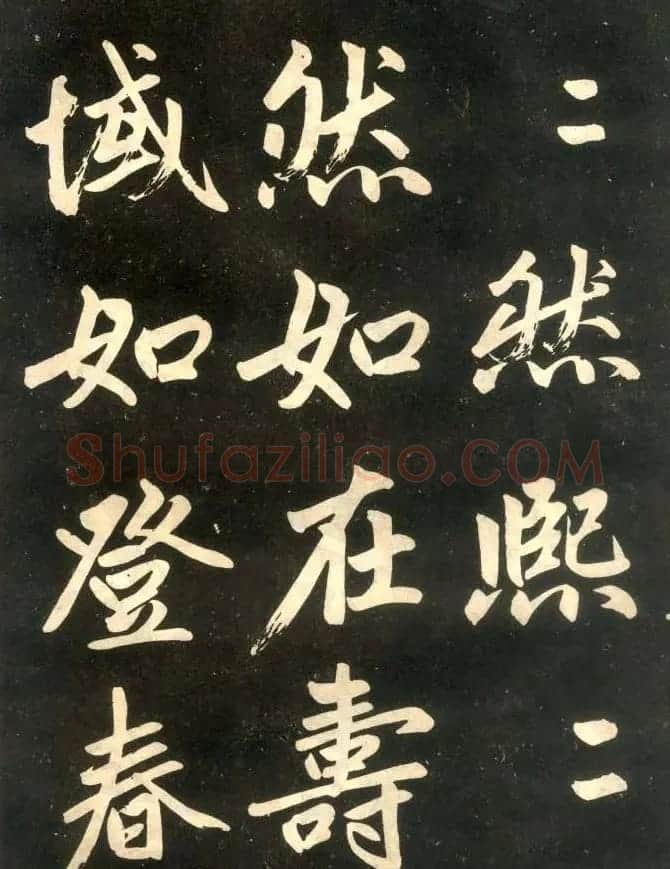 〻然熙〻
然如在壽
域如登春
Shufaziliao.COM